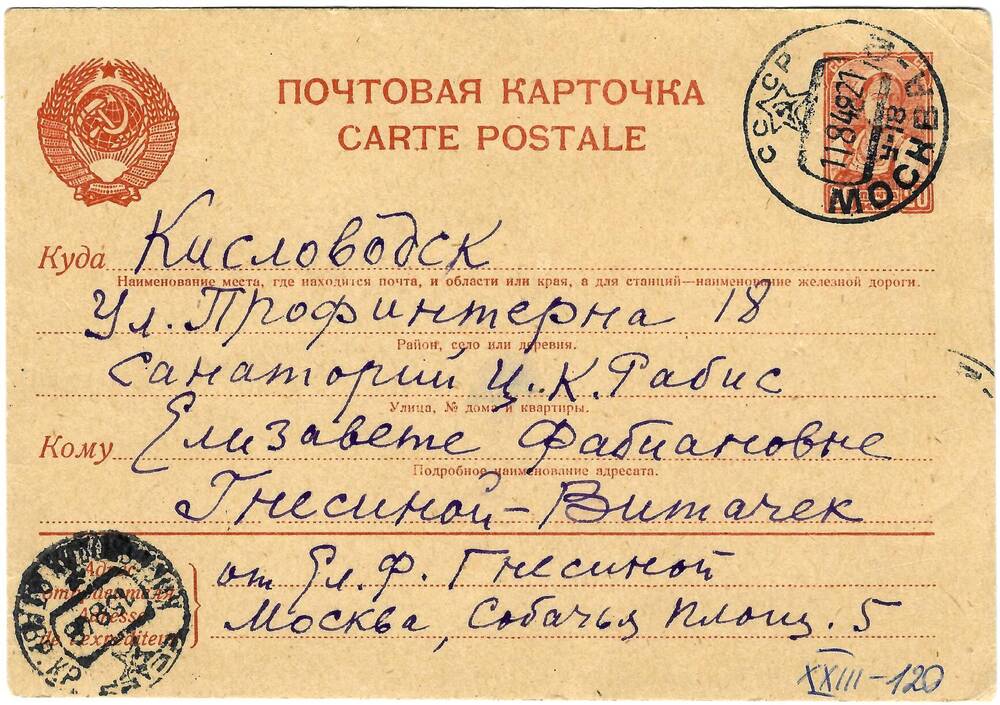 ПОЧТОВАЯ КАРТОЧКА
CARTE POSTALE
СССР
11 8 48 21
МОСКВА
Куда Кисловодск
Наименование места, где находится почта, и области или края, а для станций—наименование железной дороги.
Ул. Профинтерна 18
Район, село или деревня.
Санаторий Ц.К. Рабис
Улица, № дома и квартиры.
Кому Елизавете Фабиановне
Подробное наименование адресата.
Гнесиной-Витачек
Адрес отправителя
Adresse de l'expéditeur
от Ел. Ф. Гнесиной
Москва, Собачья Площ. 5
XXIII-120